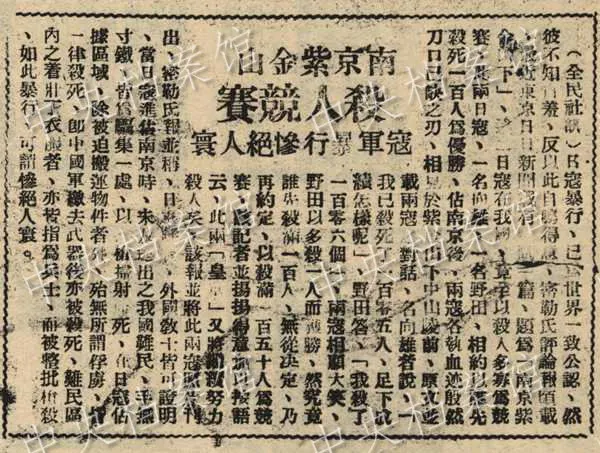 南京紫金山
殺人競賽
寇軍暴行慘絕人寰
（全民社訊）日寇暴行、已爲世界一致公認、然
彼不知羞、反以此自鳴得意、密勒氏評論報頃載
、最近東京日日新聞載有一篇、題爲南京紫
金山下」、述二日寇在我國、竟至以殺人多寡爲競
賽、此兩日寇、一名向雄、一名野田、相約以能先
殺死一百人爲優勝、佔南京後、兩寇各執血迹殷然
刀口已缺之刃、相見於紫金山下中山陵前、原文並
載兩寇對話、名向雄者說、「
我已殺死了一百零五人、足下成
績怎樣呢」、野田答、「我殺了
一百零六個」、兩寇相顧大笑、
野田以多殺一人而獲勝、然究竟
誰先殺滿一百人、無從決定、乃
再約定、以殺滿一百五十人爲競
賽、該記者並揚揚得意加以按語
云、此兩「皇軍」又將繼續努力
殺人矣、該報並將此兩寇照片刊
出、密勒氏報並稱、日寇、外國教士皆可證明
、當日寇進佔南京時、未及逃出之我國難民、手無
寸鐵、皆爲驅集一處、以機槍掃射而死、在日寇佔
據區域、除被迫搬運物件者外、殆無所謂俘虜、
一律殺死、卽中國軍繳去武器後亦被殺死、難民區
內之着壯丁衣服者、亦被指爲兵士、而被整批槍殺
、如此暴行、可謂慘絕人寰。
中央档案馆